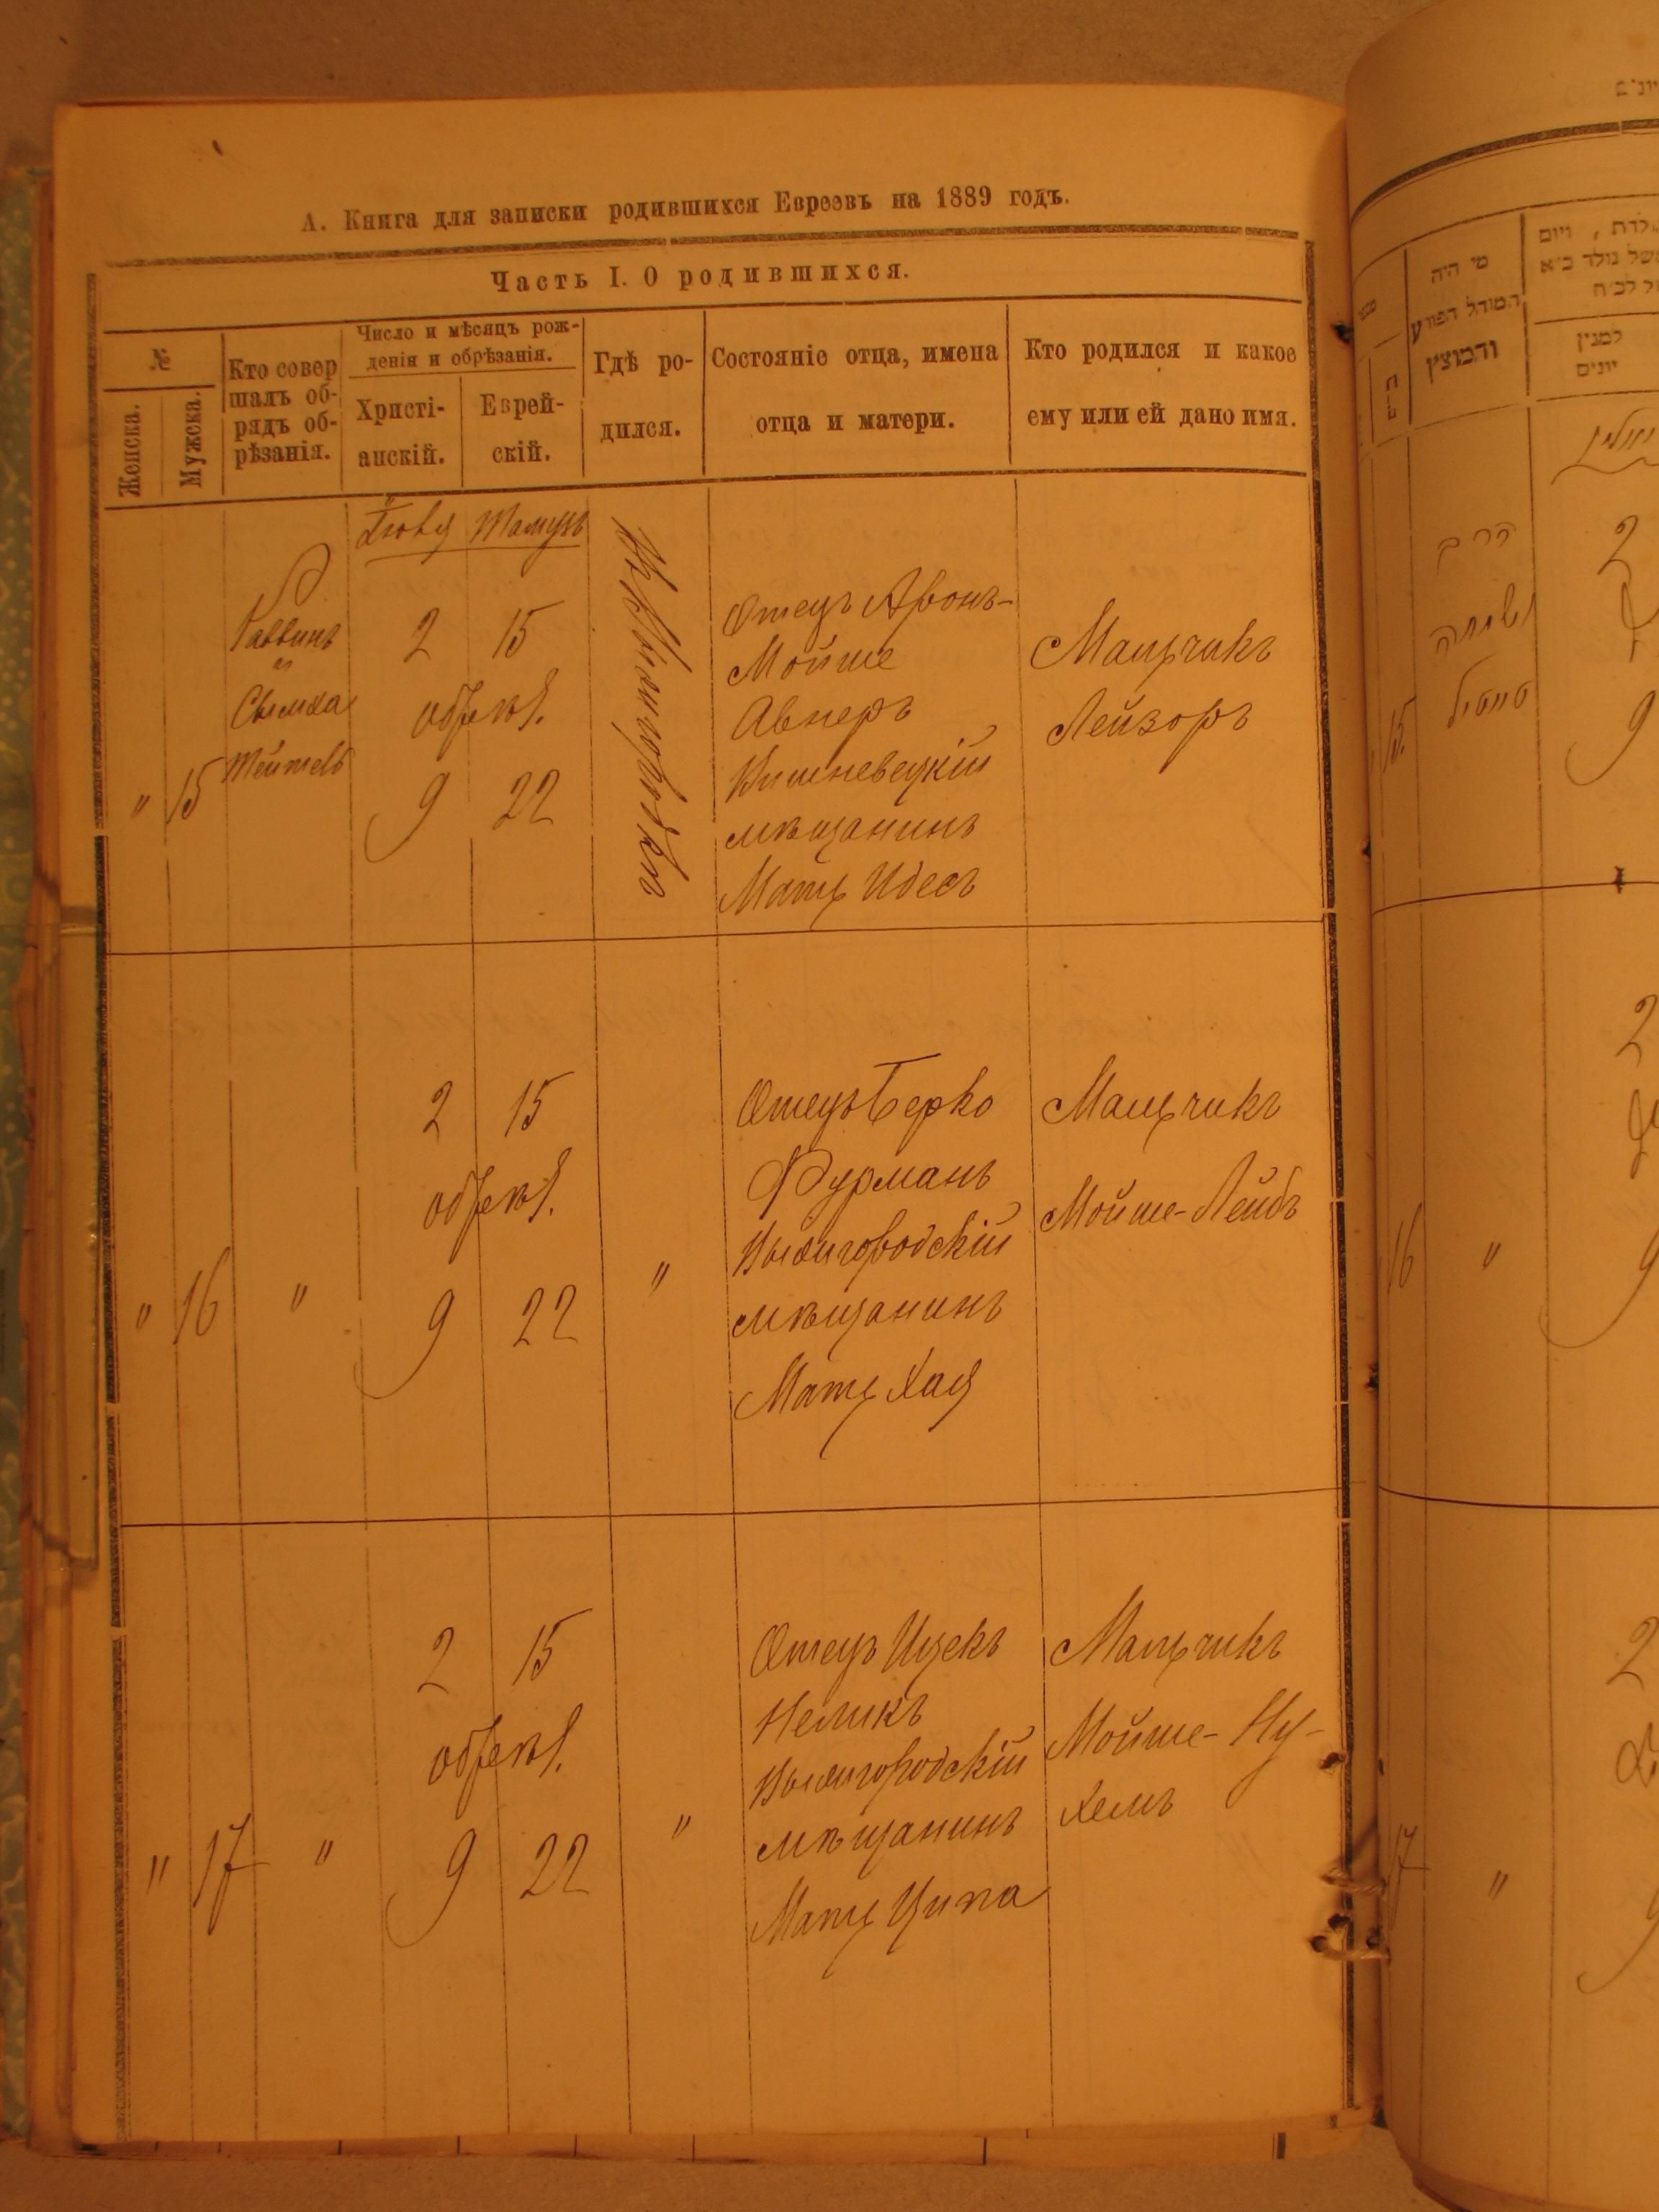 А. Книга для записки родившихся Евреевъ на 1889 годъ.
Часть I. О родившихся.
№
Женска.
Мужска.
Кто совер
шалъ об-
рядъ об-
рѣзанія.
Число и мѣсяцъ рож-
денія и обрѣзанія.
Христі-
анскій.
Еврей-
скій.
Гдѣ ро-
дился.
Состояніе отца, имена
отца и матери.
Кто родился и какое
ему или ей дано имя.
Іюня Тамузъ
" 15
Раввинъ
и
Сымха
Тейтель
2 15
обрѣз.
9 22
Отецъ Аронъ-
Мойше
Авнеръ
Кишневецкій
мѣщанинъ
Мать Идесъ
Мальчикъ
Лейзоръ
" 16 "
2 15
обрѣз.
9 22
"
Отецъ Берко
Фурманъ
Вышгородскій
мѣщанинъ
Мать Хая
Мальчикъ
Мойше-Лейбъ
" 17 "
2 15
обрѣз.
9 22
"
Отецъ Ицекъ
Неликъ
Вышгородскій
мѣщанинъ
Мать Ципа
Мальчикъ
Мойше-Ну-
хемъ
מי היה
המוהל הפורע
והמוצץ
לדת, ויום
למנין
יונים
הרב
ושמחה
טייטיל
15
2
9
16 "
2
9
17 "
2